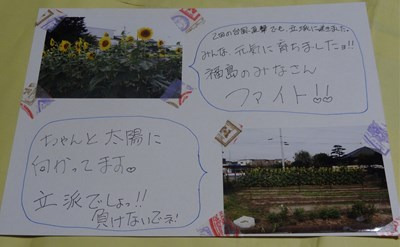 2回の台風直撃でも立派に咲きました。
みんな 元気に育ちましたョ!!
福島のみなさん
ファイト!!
ちゃんと太陽に
向かってます。
立派でしょっ!!
負けないでネ!